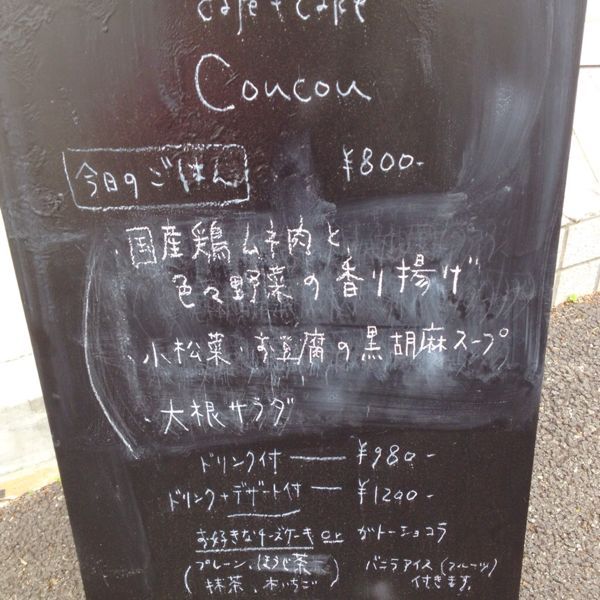 cafe + cafe
Coucou
今日のごはん ¥800-
・国産鶏ムネ肉と、
色々野菜の香り揚げ
・小松菜・お豆腐の黒胡麻スープ
・大根サラダ
ドリンク付 ― ¥980-
ドリンク+デザート付 ― ¥1200-
お好きなチーズケーキ or ガトーショコラ
(プレーン、ほうじ茶 バニラアイス(フルーツ)
抹茶、木いちご) 付きます。